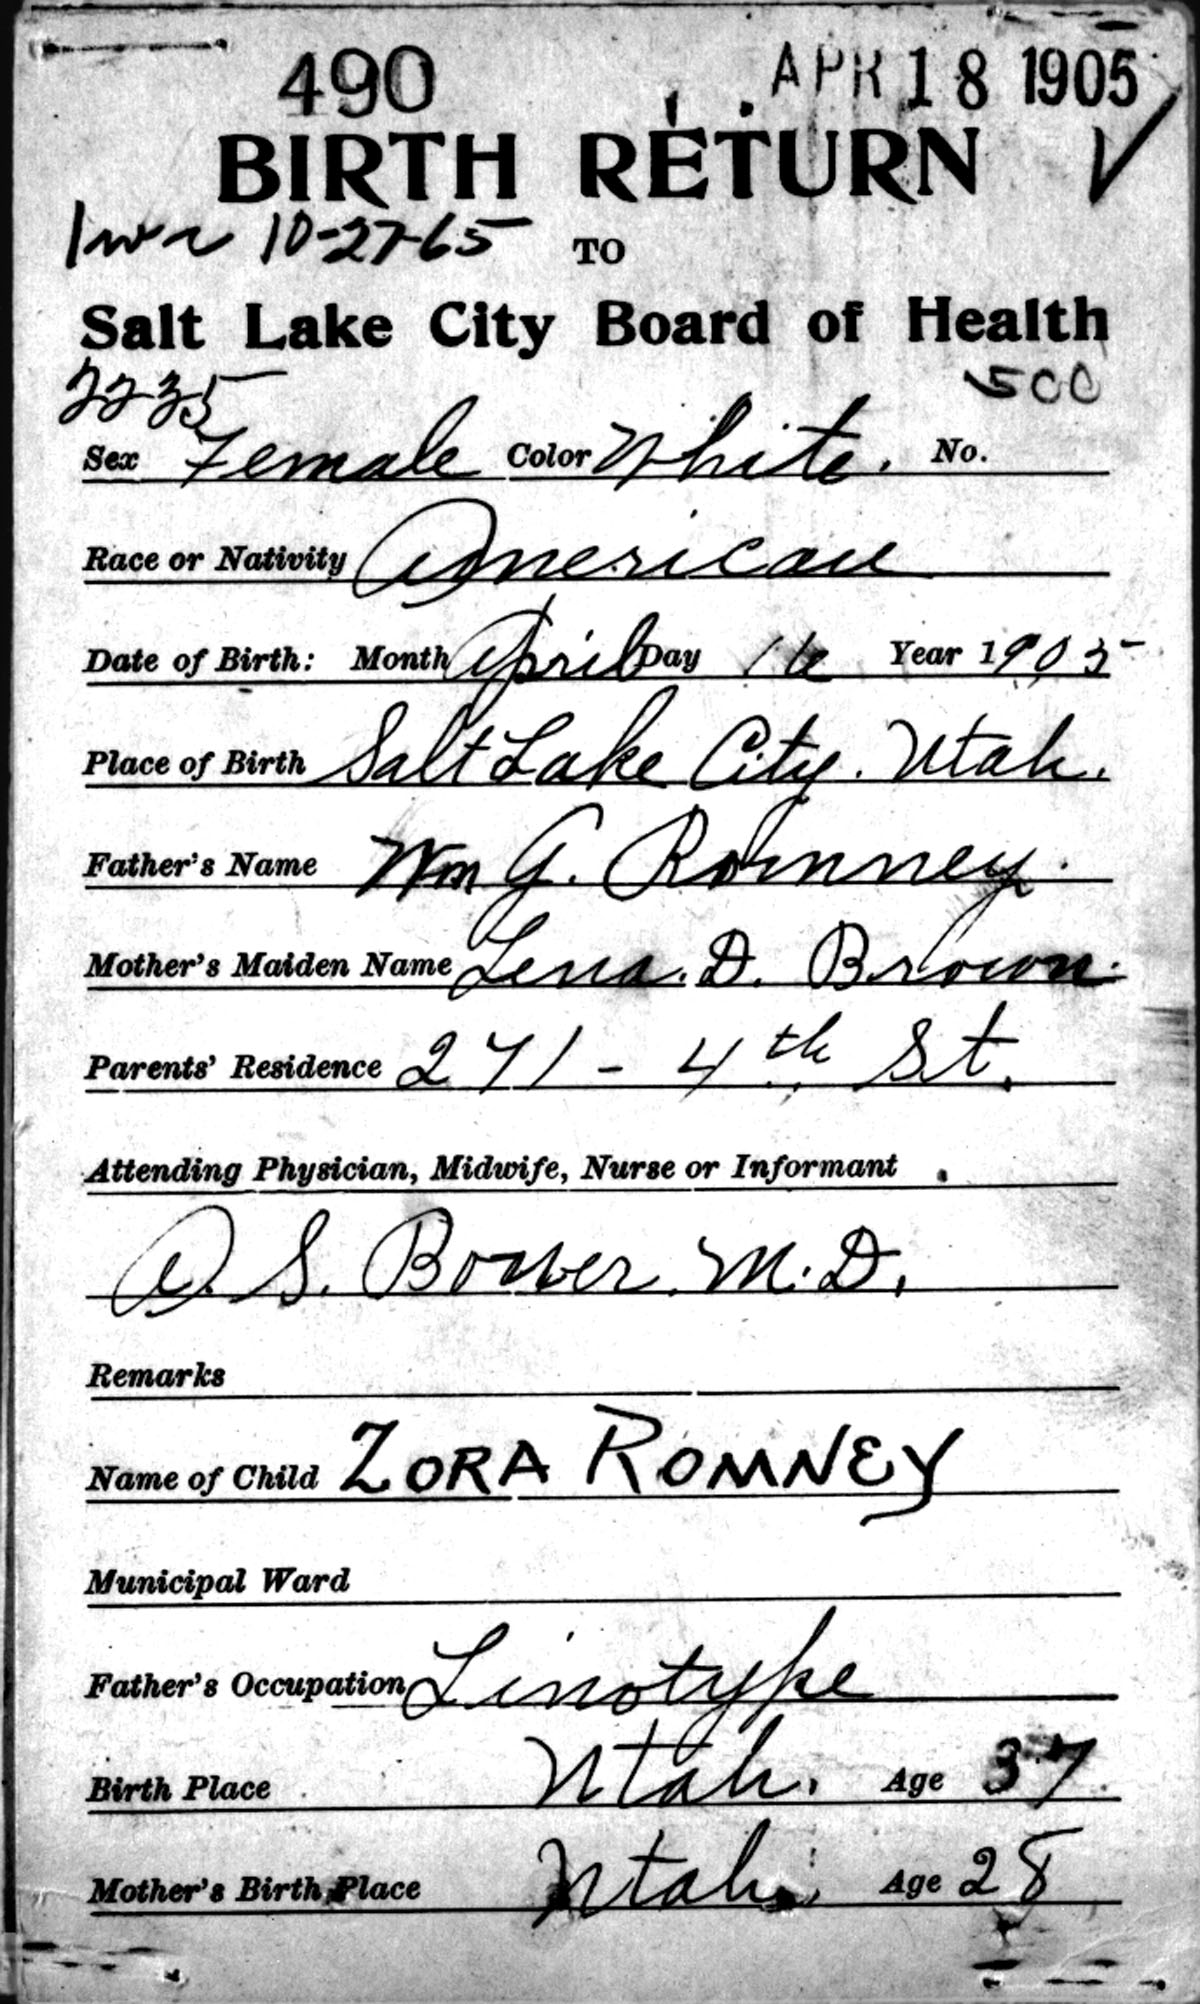 490 APR 18 1905
BIRTH RETURN
10-27-65 TO
Salt Lake City Board of Health
2235 500
Sex Female Color White. No.
Race or Nativity American
Date of Birth: Month April Day 16 Year 1905
Place of Birth Salt Lake City. Utah.
Father's Name Wm G. Romney.
Mother's Maiden Name Lena. D. Brown.
Parents' Residence 271 - 4th St.
Attending Physician, Midwife, Nurse or Informant
S. Bower M.D.
Remarks
Name of Child ZORA ROMNEY
Municipal Ward
Father's Occupation Linotype
Birth Place Utah. Age 37
Mother's Birth Place Utah. Age 28